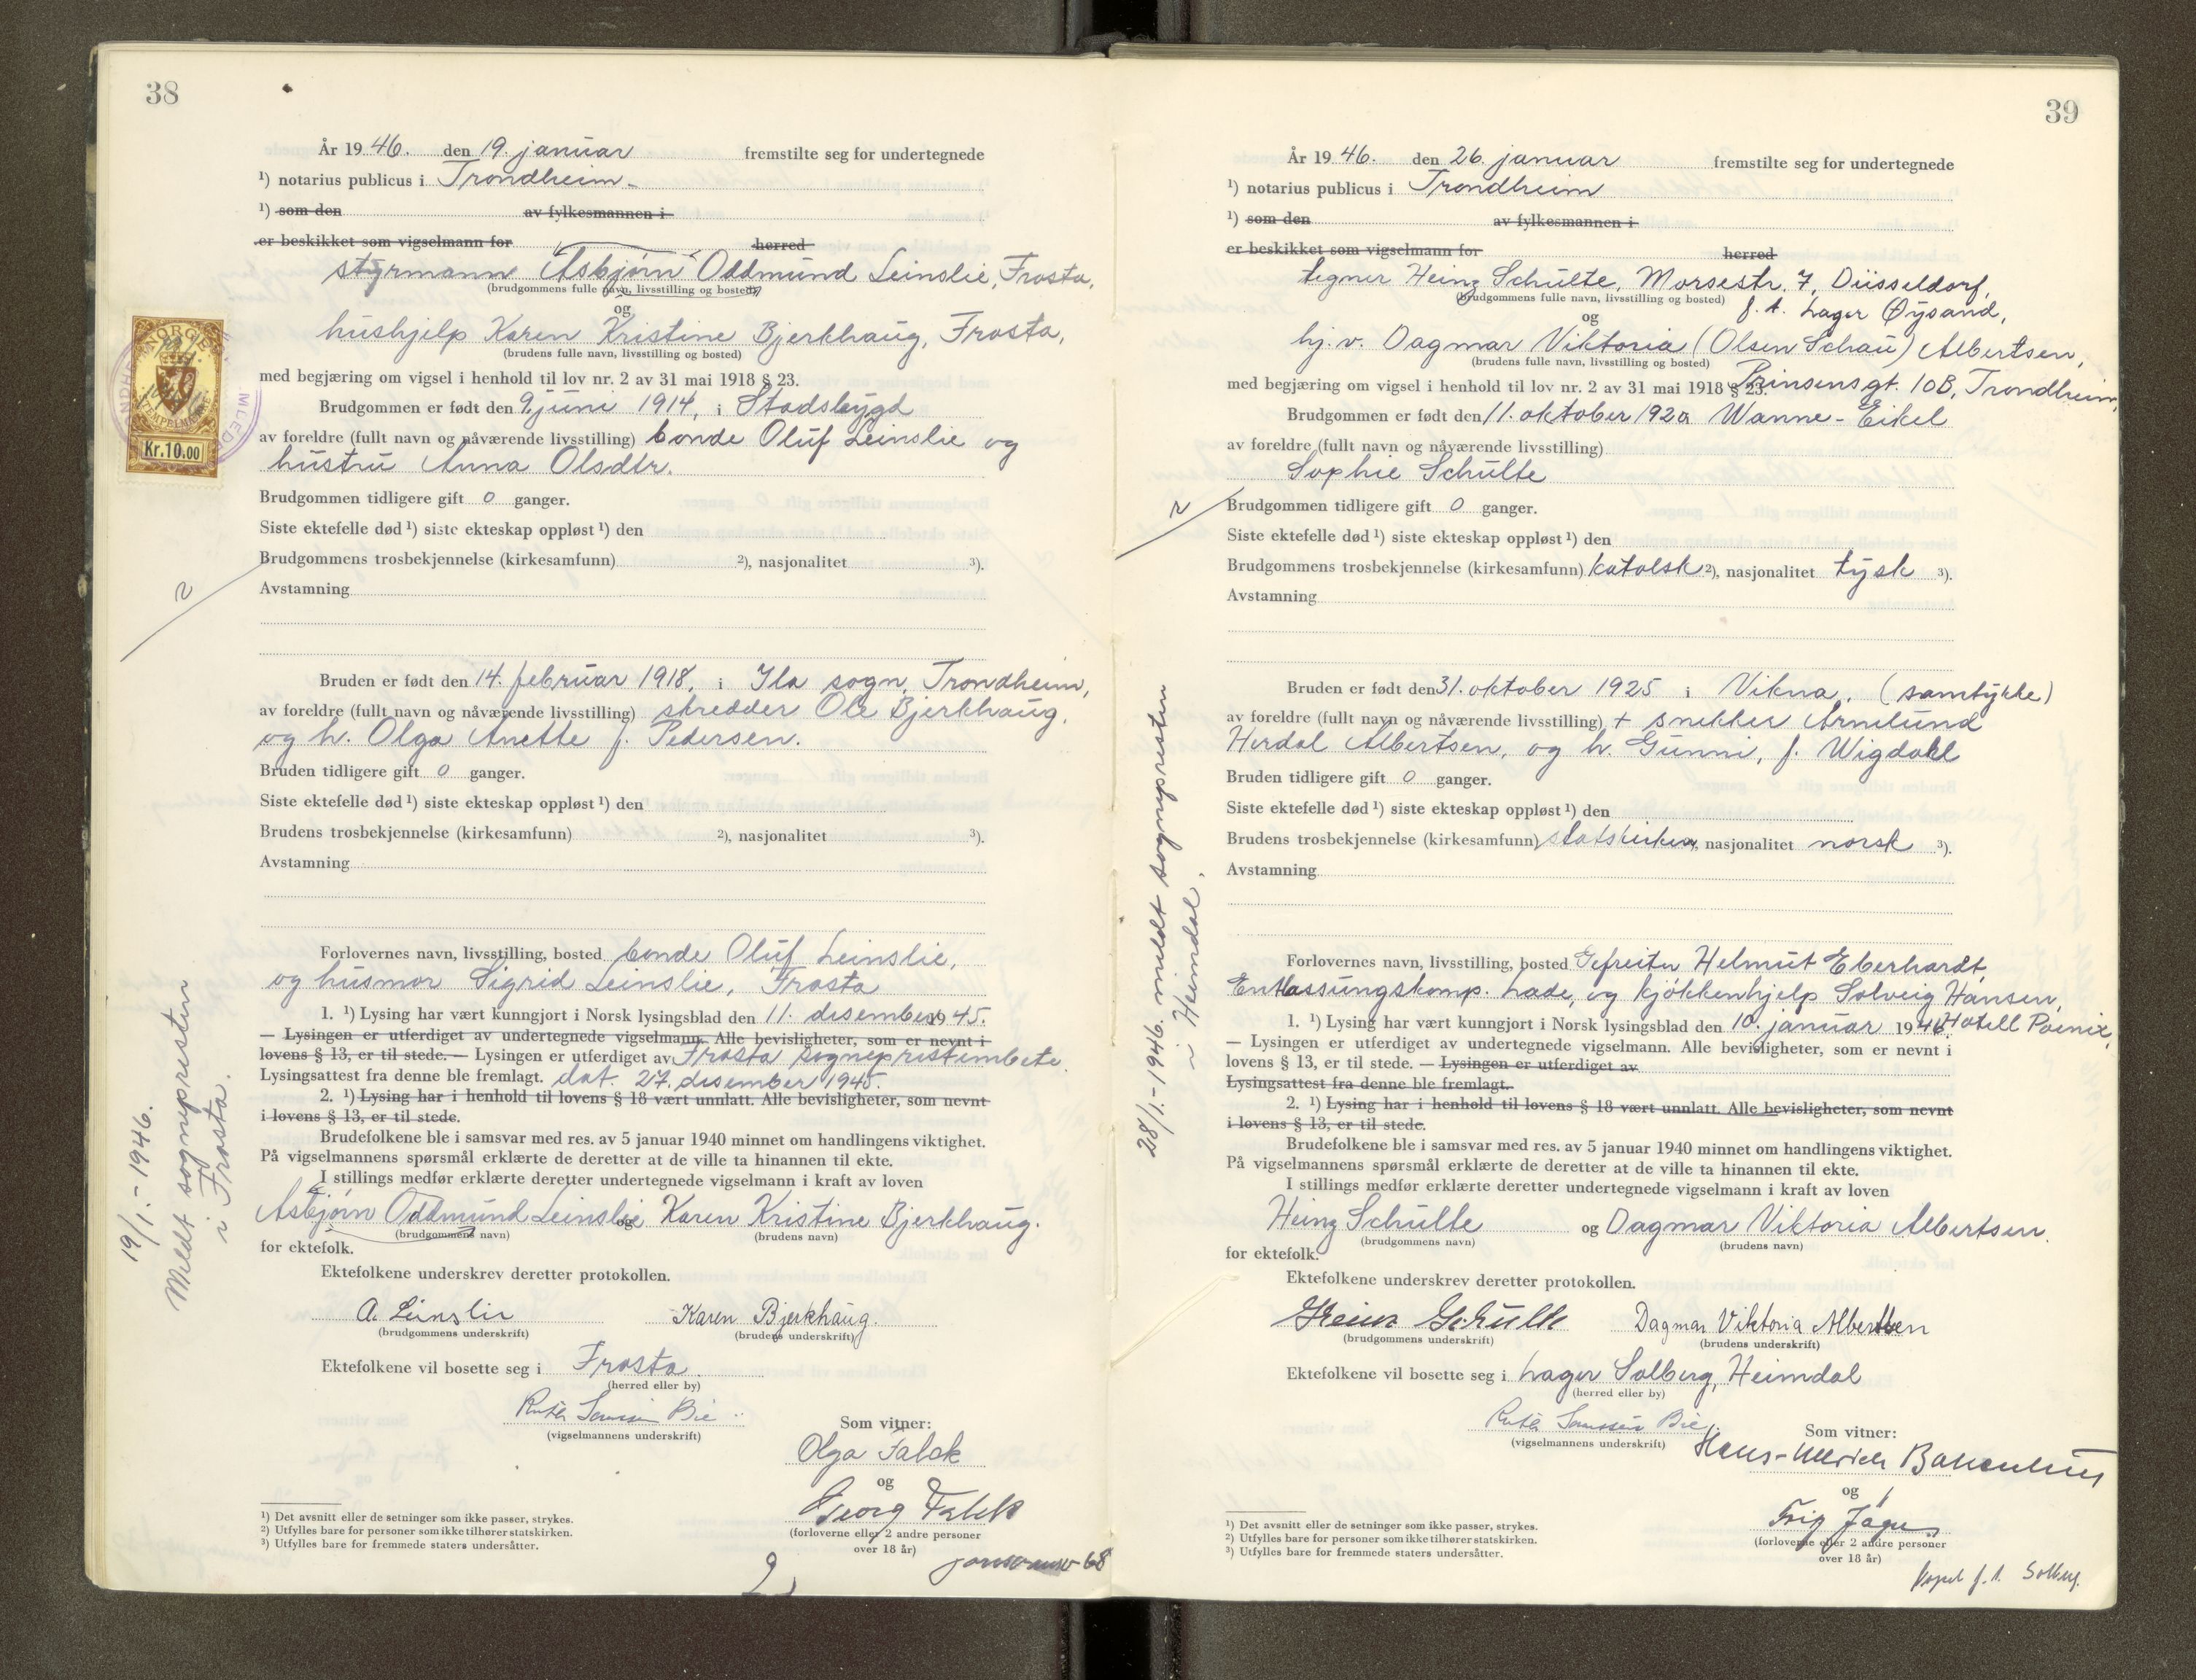 38
År 1946. den 19. januar fremstilte seg for undertegnede
¹) notarius publicus i Trondheim.
¹) som den av fylkesmannen i
er beskikket som vigselmann for herred
styrmann Asbjørn Oddmund Leinslie, Frosta,
(brudgommens fulle navn, livsstilling og bosted)
og
hushjelp Karen Kristine Bjerkhaug, Frosta,
(brudens fulle navn, livsstilling og bosted)
med begjæring om vigsel i henhold til lov nr. 2 av 31 mai 1918 § 23.
Brudgommen er født den 9. juni 1914, i Stadsbygd
av foreldre (fullt navn og nåværende livsstilling) bonde Oluf Leinslie og
hustru Anna Olsdtr.
Kr. 10.00
Brudgommen tidligere gift 0 ganger.
Siste ektefelle død ¹) siste ekteskap oppløst ¹) den
Brudgommens trosbekjennelse (kirkesamfunn) ²), nasjonalitet ³).
Avstamning
Bruden er født den 14. februar 1918, i Ila sogn, Trondheim,
av foreldre (fullt navn og nåværende livsstilling) skredder Ole Bjerkhaug,
og h. Olga Anette f. Pedersen.
Bruden tidligere gift 0 ganger.
Siste ektefelle død ¹) siste ekteskap oppløst ¹) den
Brudens trosbekjennelse (kirkesamfunn) ²), nasjonalitet ³).
Avstamning
Forlovernes navn, livsstilling, bosted bonde Oluf Leinslie,
og husmor Sigrid Leinslie, Frosta
1. ¹) Lysing har vært kunngjort i Norsk lysingsblad den 11. desember 1945.
— Lysingen er utferdiget av undertegnede vigselmann. Alle bevisligheter, som er nevnt i
lovens § 13, er til stede. — Lysingen er utferdiget av Frosta sogneprestembete.
Lysingsattest fra denne ble fremlagt. dat. 27. desember 1945.
2. ¹) Lysing har i henhold til lovens § 18 vært unnlatt. Alle bevisligheter, som nevnt
i lovens § 13, er til stede.
Brudefolkene ble i samsvar med res. av 5 januar 1940 minnet om handlingens viktighet.
På vigselmannens spørsmål erklærte de deretter at de ville ta hinannen til ekte.
I stillings medfør erklærte deretter undertegnede vigselmann i kraft av loven
Asbjørn Oddmund Leinslie og Karen Kristine Bjerkhaug.
(brudgommens navn) (brudens navn)
for ektefolk.
Ektefolkene underskrev deretter protokollen.
A. Leinslie Karen Bjerkhaug.
(brudgommens underskrift) (brudens underskrift)
Ektefolkene vil bosette seg i Frosta.
(herred eller by)
Ruth Bie
(vigselmannens underskrift)
Som vitner:
Olga Falck
og
Georg Falck
(forloverne eller 2 andre personer
over 18 år)
¹) Det avsnitt eller de setninger som ikke passer, strykes.
²) Utfylles bare for personer som ikke tilhører statskirken.
³) Utfylles bare for fremmede staters undersåtter.
19/1.-1946.
Meldt sognepresten
i Frosta.
39
År 1946. den 26. januar fremstilte seg for undertegnede
¹) notarius publicus i Trondheim
¹) som den av fylkesmannen i
er beskikket som vigselmann for herred
tegner Heinz Schulte, Morsestr. 7, Düsseldorf,
(brudgommens fulle navn, livsstilling og bosted)
f. t. Lager Øysand,
og
hj. v. Dagmar Viktoria (Olsen Schau) Albertsen,
(brudens fulle navn, livsstilling og bosted)
Prinsensgt. 10B, Trondheim,
med begjæring om vigsel i henhold til lov nr. 2 av 31 mai 1918 § 23.
Brudgommen er født den 11. oktober 1920 Wanne-Eikel
av foreldre (fullt navn og nåværende livsstilling)
Sophie Schulte
Brudgommen tidligere gift 0 ganger.
Siste ektefelle død ¹) siste ekteskap oppløst ¹) den
Brudgommens trosbekjennelse (kirkesamfunn) katolsk ²), nasjonalitet tysk ³).
Avstamning
Bruden er født den 31. oktober 1925 i Vikna. (samtykke)
av foreldre (fullt navn og nåværende livsstilling) + snekker Arnelund
Herdal Albertsen, og h. Gunni, f. Wigdahl
Bruden tidligere gift 0 ganger.
Siste ektefelle død ¹) siste ekteskap oppløst ¹) den
Brudens trosbekjennelse (kirkesamfunn) statskirken, nasjonalitet norsk ³).
Avstamning
Forlovernes navn, livsstilling, bosted Gefreiter Helmut Eberhardt,
Entlassungskomp. Lade, og kjøkkenhjelp Solveig Hansen,
Hotell Pønix,
1. ¹) Lysing har vært kunngjort i Norsk lysingsblad den 10. januar 1946.
— Lysingen er utferdiget av undertegnede vigselmann. Alle bevisligheter, som er nevnt i
lovens § 13, er til stede. — Lysingen er utferdiget av
Lysingsattest fra denne ble fremlagt.
2. ¹) Lysing har i henhold til lovens § 18 vært unnlatt. Alle bevisligheter, som nevnt
i lovens § 13, er til stede.
Brudefolkene ble i samsvar med res. av 5 januar 1940 minnet om handlingens viktighet.
På vigselmannens spørsmål erklærte de deretter at de ville ta hinannen til ekte.
I stillings medfør erklærte deretter undertegnede vigselmann i kraft av loven
Heinz Schulte og Dagmar Viktoria Albertsen.
(brudgommens navn) (brudens navn)
for ektefolk.
Ektefolkene underskrev deretter protokollen.
Heinz Schulte Dagmar Viktoria Albertsen
(brudgommens underskrift) (brudens underskrift)
Ektefolkene vil bosette seg i Lager Solberg, Heimdal
(herred eller by)
Ruth Bie
(vigselmannens underskrift)
Som vitner:
Hans-Ullrich
og
(forloverne eller 2 andre personer
over 18 år)
f. t. Solberg.
¹) Det avsnitt eller de setninger som ikke passer, strykes.
²) Utfylles bare for personer som ikke tilhører statskirken.
³) Utfylles bare for fremmede staters undersåtter.
28/1.-1946. meldt sognepresten
i Heimdal.